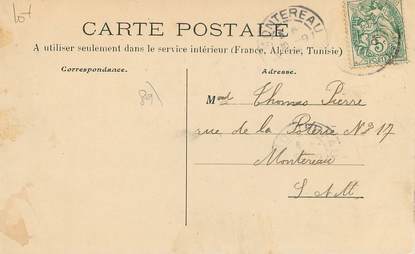 MONTEREAU
CARTE POSTALE
A utiliser seulement dans le service intérieur (France, Algérie, Tunisie)
Correspondance.
Adresse.
89)
Thomas Pierre
rue de la Poterie No 17
Montereau
S et M